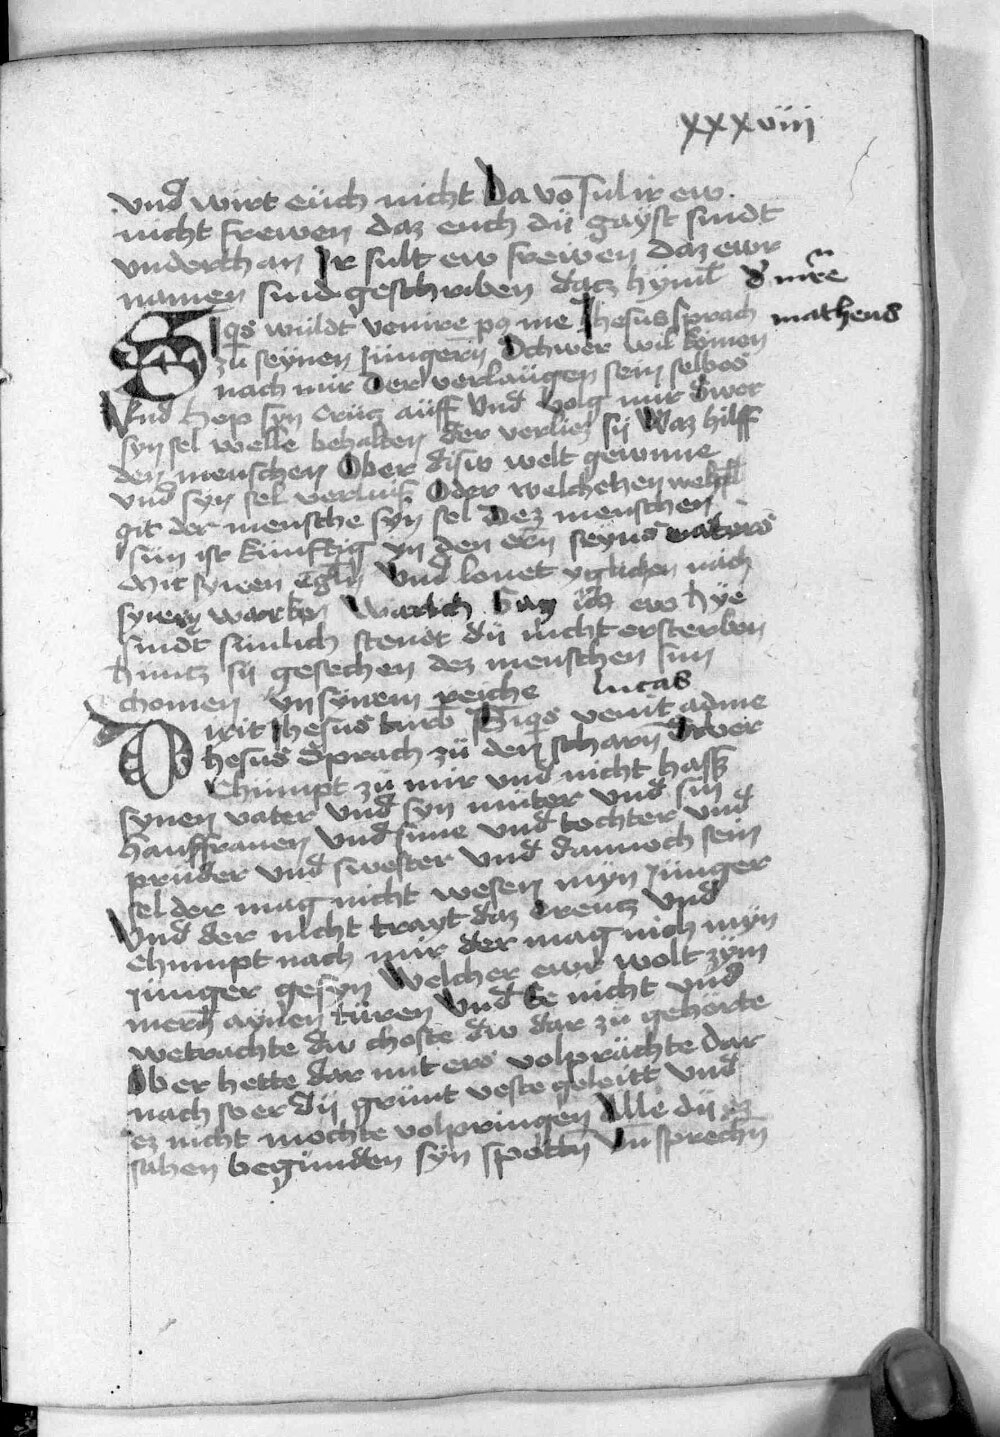 xxxviii
vnd wirt euch nicht Da vo̅ sul ir ew
nicht frewen daz euch dü gayst sindt
vnderthan Ir sult ew frewen daz ewr
namen sind geschriben datz hyml̅
matheus
S Iq̅s wuldt venire po̅ me Ihesus sprach
zu seynen Jüngern̅ Schwer wil kömen
nach mir Der verlaügen sein selbes
Vnd hep syn crütz aüff Vnd volg mir Swer
syn sel welle behalten der verlies sü Waz hilff
den menschen Ober disw welt gewinne
vnd syn sel verluis Oder welchehen
git der mensche syn sel Dez menschen
sün ist künftig yn den ern̅ seyns vaters
Mit synen Vnd lonet yglichen nach
synen warken Warlich sag ich ew hye
sindt sümlich stendt dü nicht ersterben
hüntz sü gesechen dez menschen sun
chomen yn synem reiche lucas
D ixit Ihesus turb̅ Siq̅s venit adme
Ihesus Sprach zü den scharn̅ Swer
chümpt zü mir vnd nicht hass
synen vater vnd syn müter vnd sin
hausfrauen vnd süne vnd tochter vnd
prüder vnd swester vnd dannoch sein
sel der mag nicht wesen myn Jünger
Vnd der nicht trayt daz Creutz Vnd
chumpt nach mir der mag nich myn
Jünger gesyn Welcher ewr wolt zym
mern̅ aynen türen Vnd se nicht vnd
wetrachte dw choste dw dar zü gehörte
Ob er hette dar mit ers volprächte Dar
nach so er dü grünt veste geleitt vnd
ez nicht mochte volpringen Alle dü ez
sahen begünden syn spotten̅ Vn̅ sprechen̅